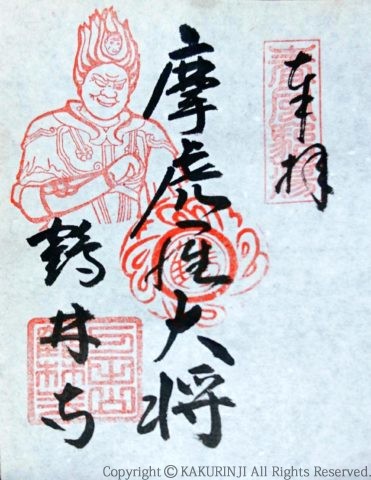 奉拝
摩虎羅大将
鶴林寺
Copyright Ⓒ KAKURINJI All Rights Reserved.